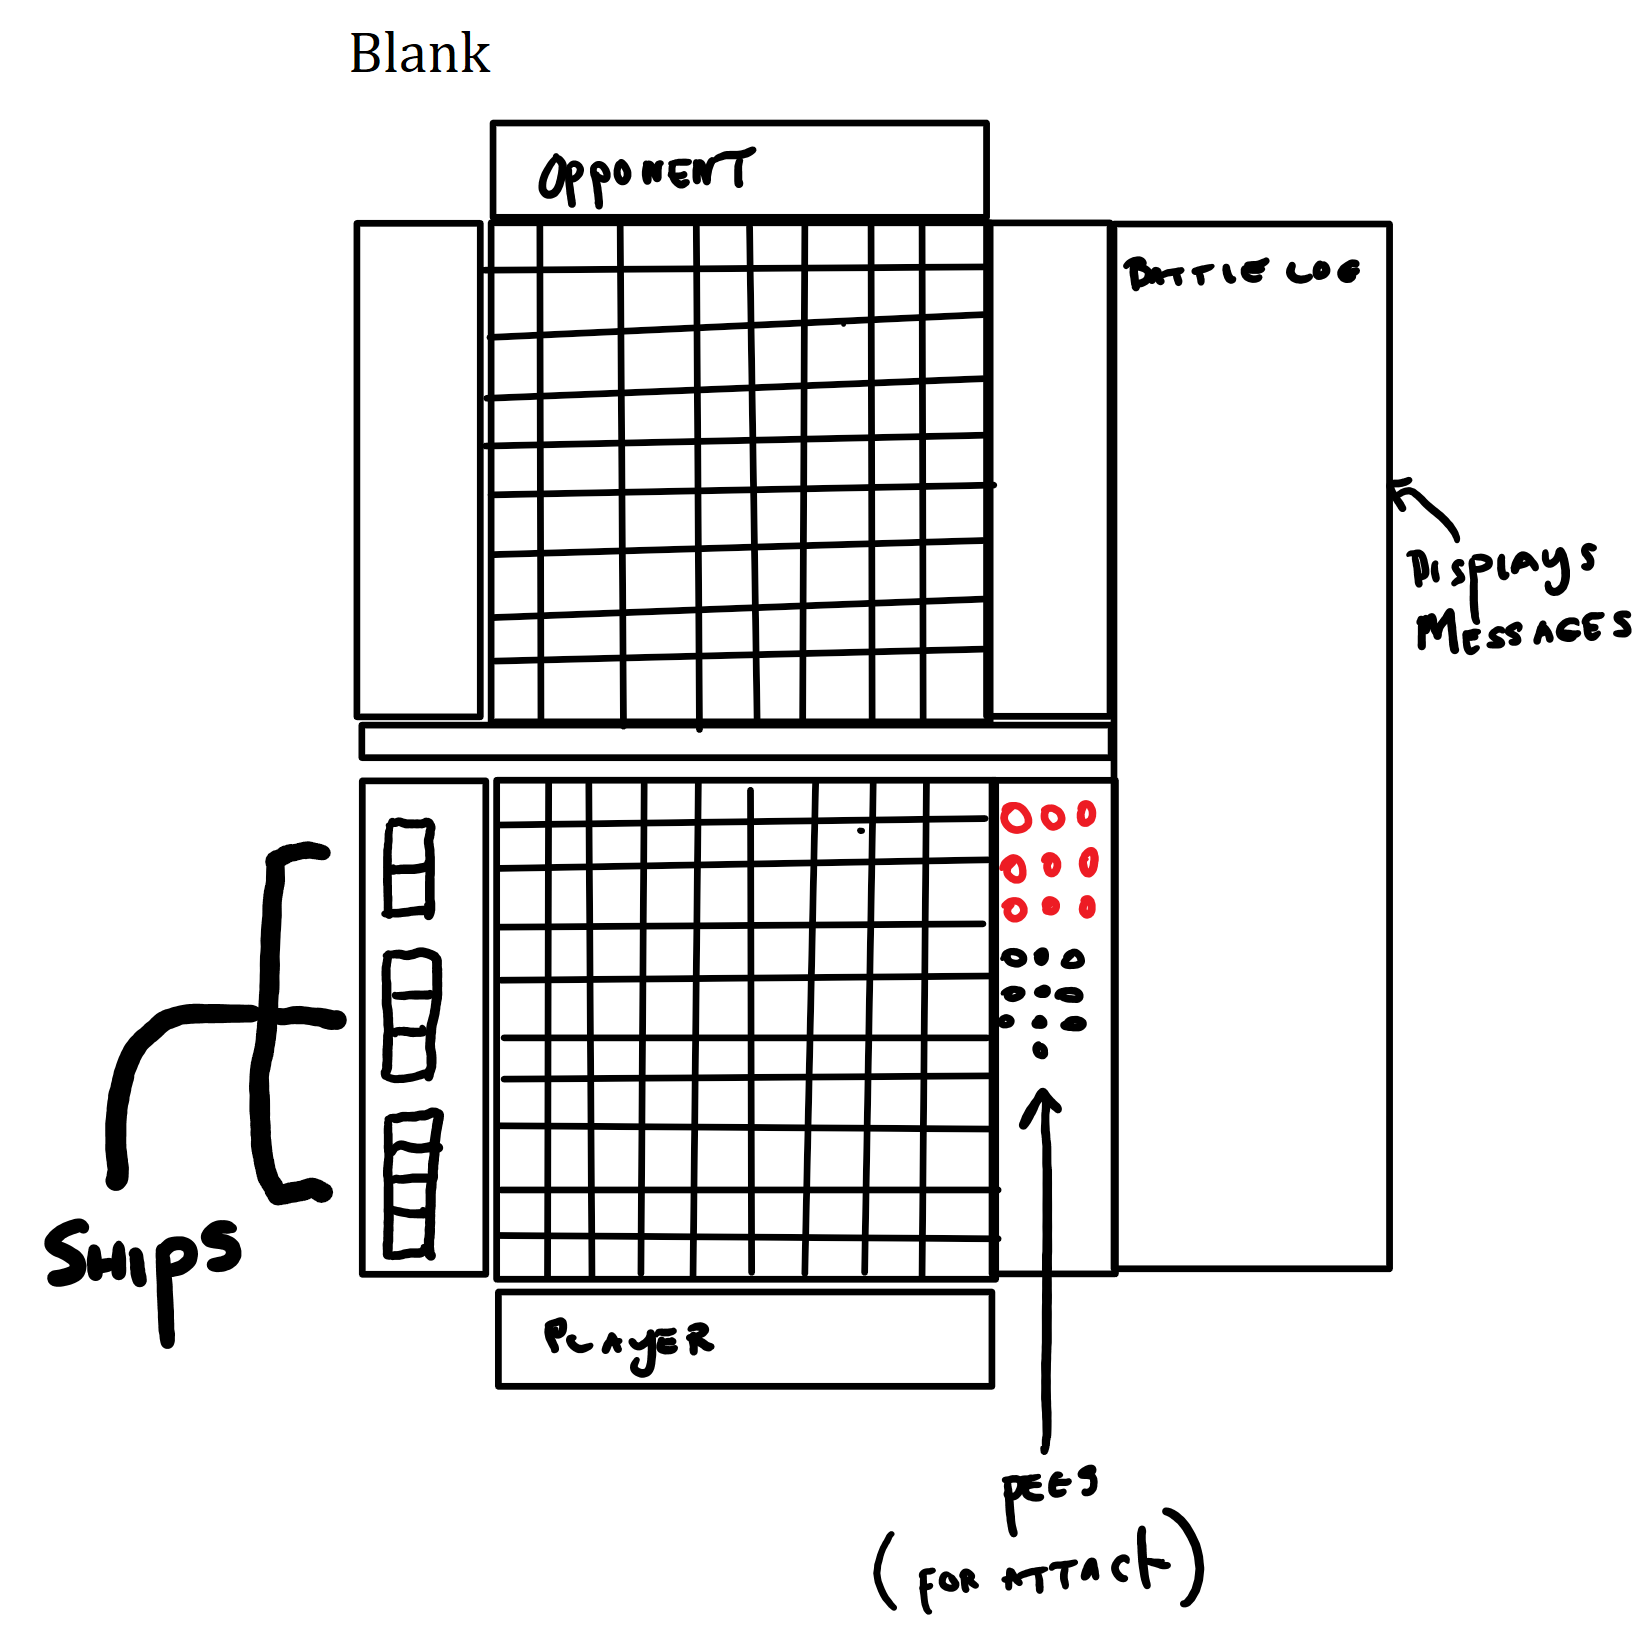 Blank
OPPONENT
BATTLE LOG
DISPLAYS
MESSAGES
SHIPS
PLAYER
PEGS
(FOR ATTACK)